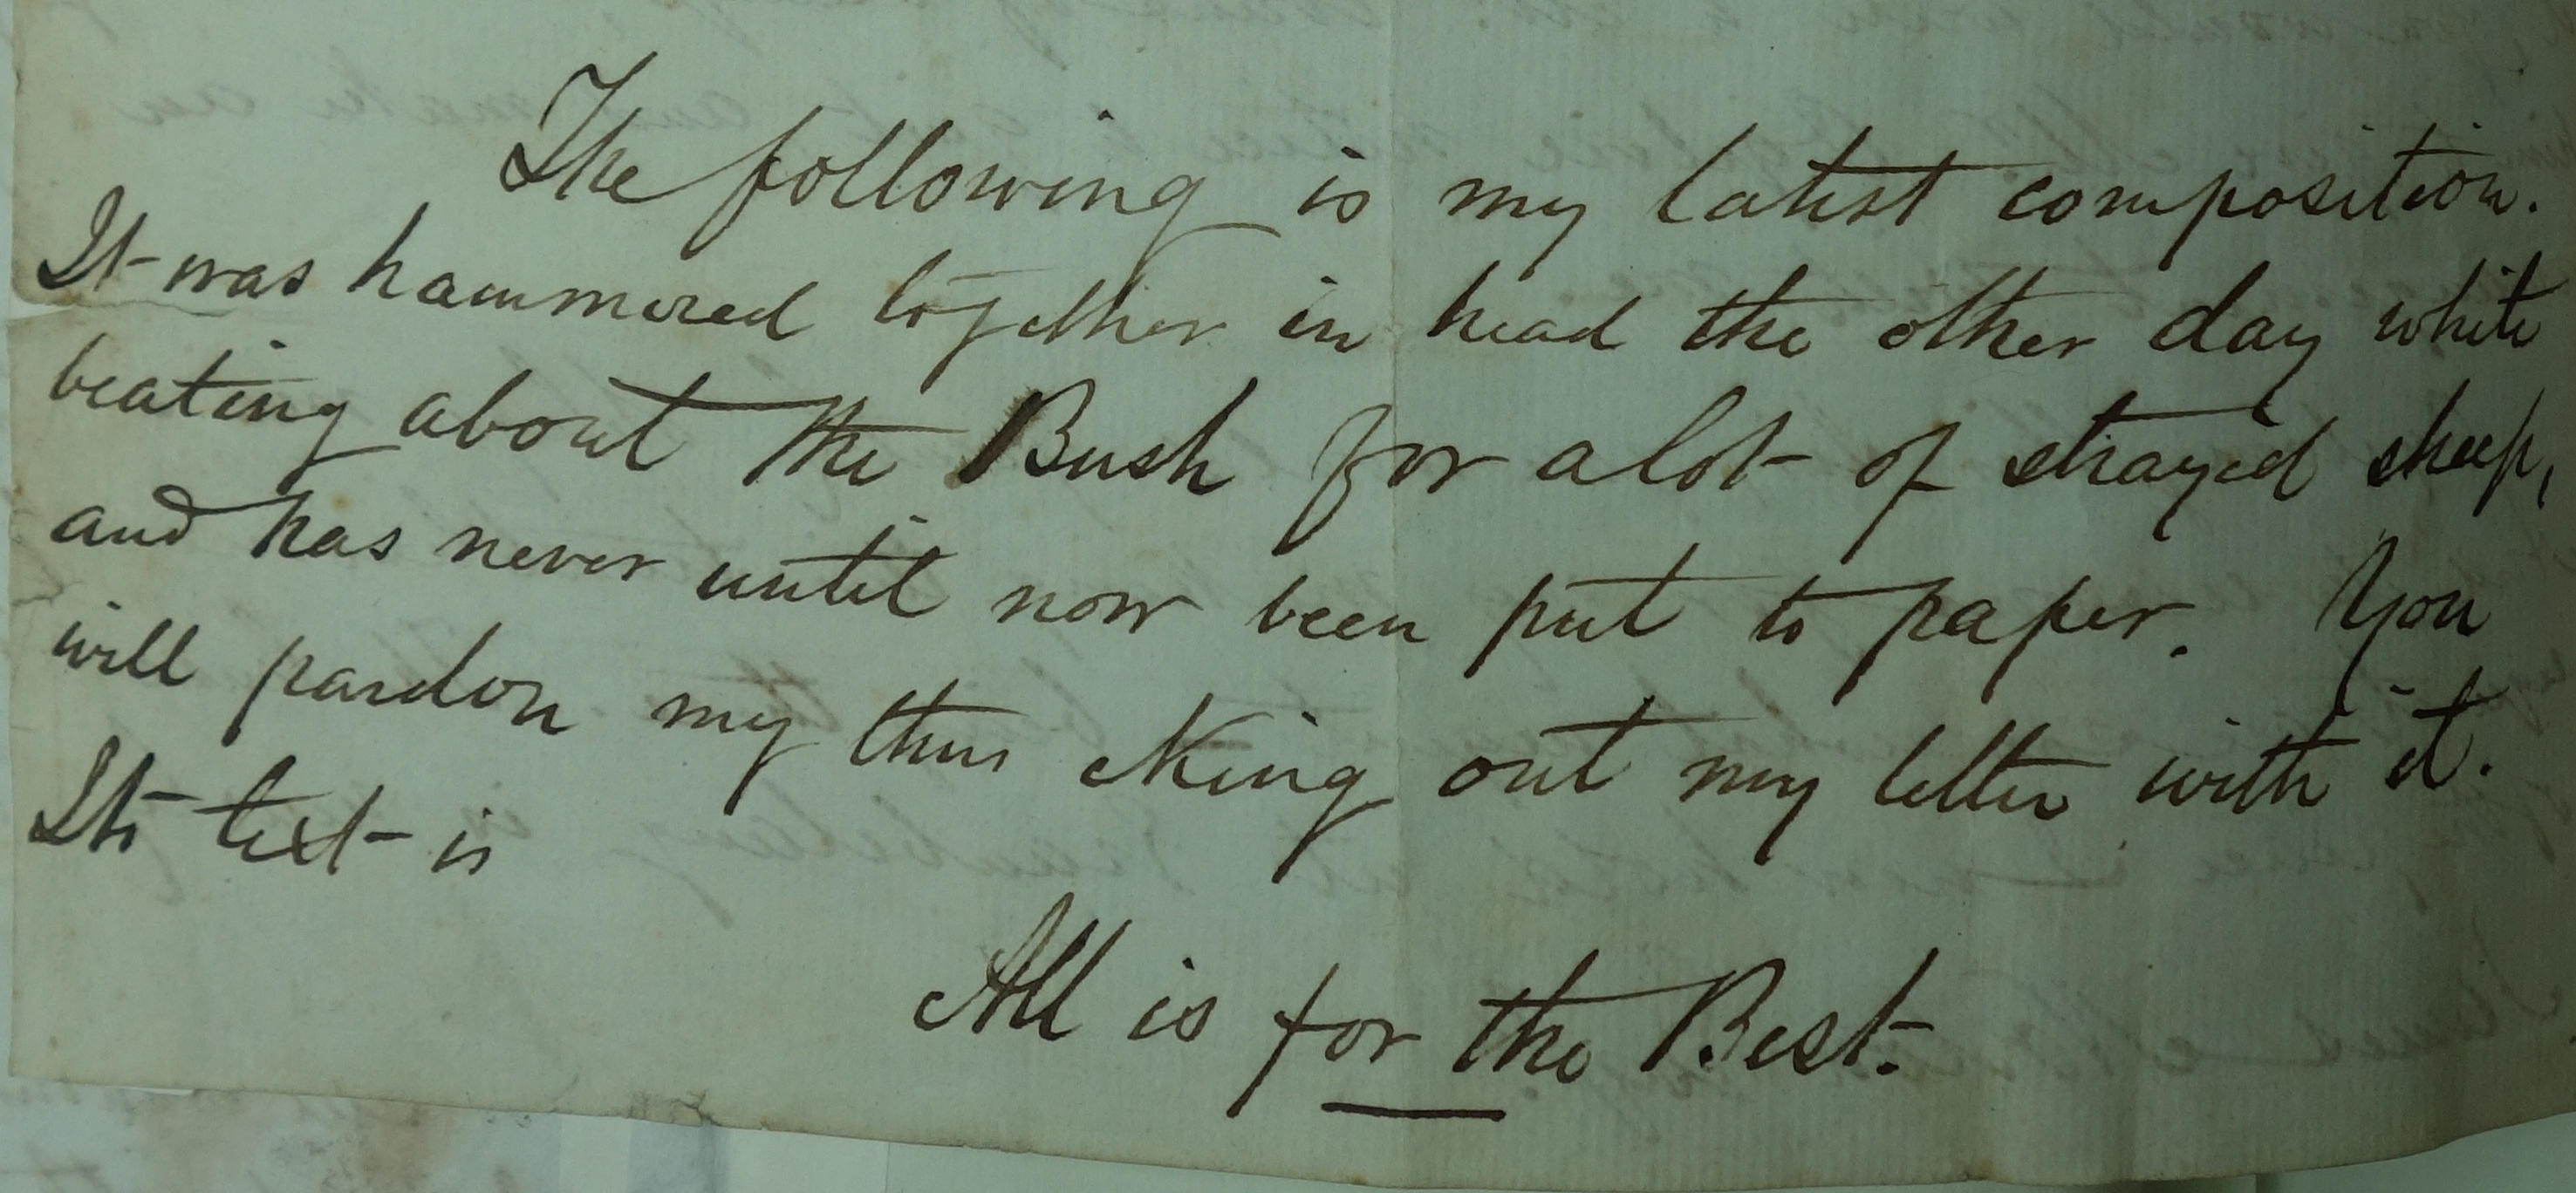 The following is my latest composition.
It was hammered together in head the other day while
beating about the Bush for a lot of strayed sheep,
and has never until now been put to paper. You
will pardon my thus eking out my letter with it.
Its text is
All is for the Best.